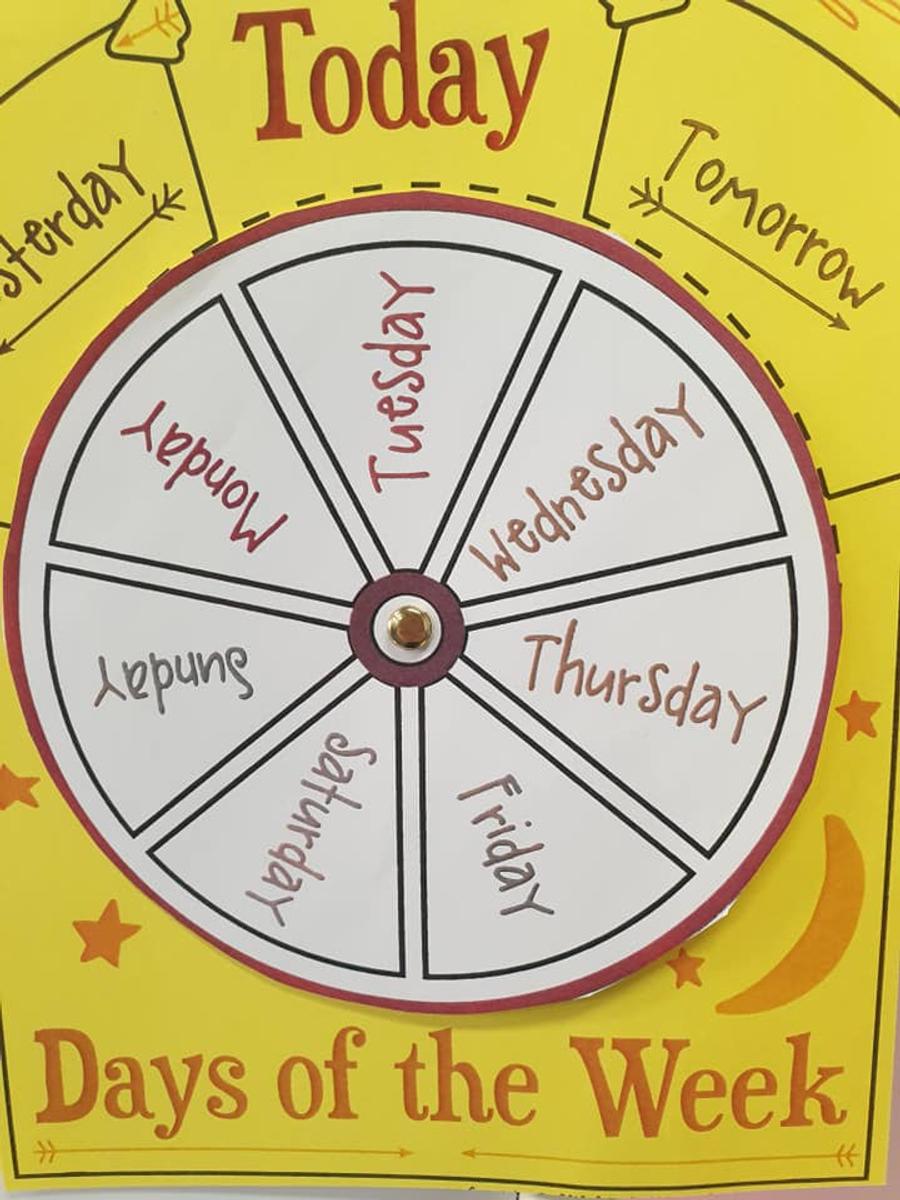 Today
sterday
Tomorrow
Monday
Tuesday
Wednesday
Thursday
Friday
Saturday
Sunday
Days of the Week